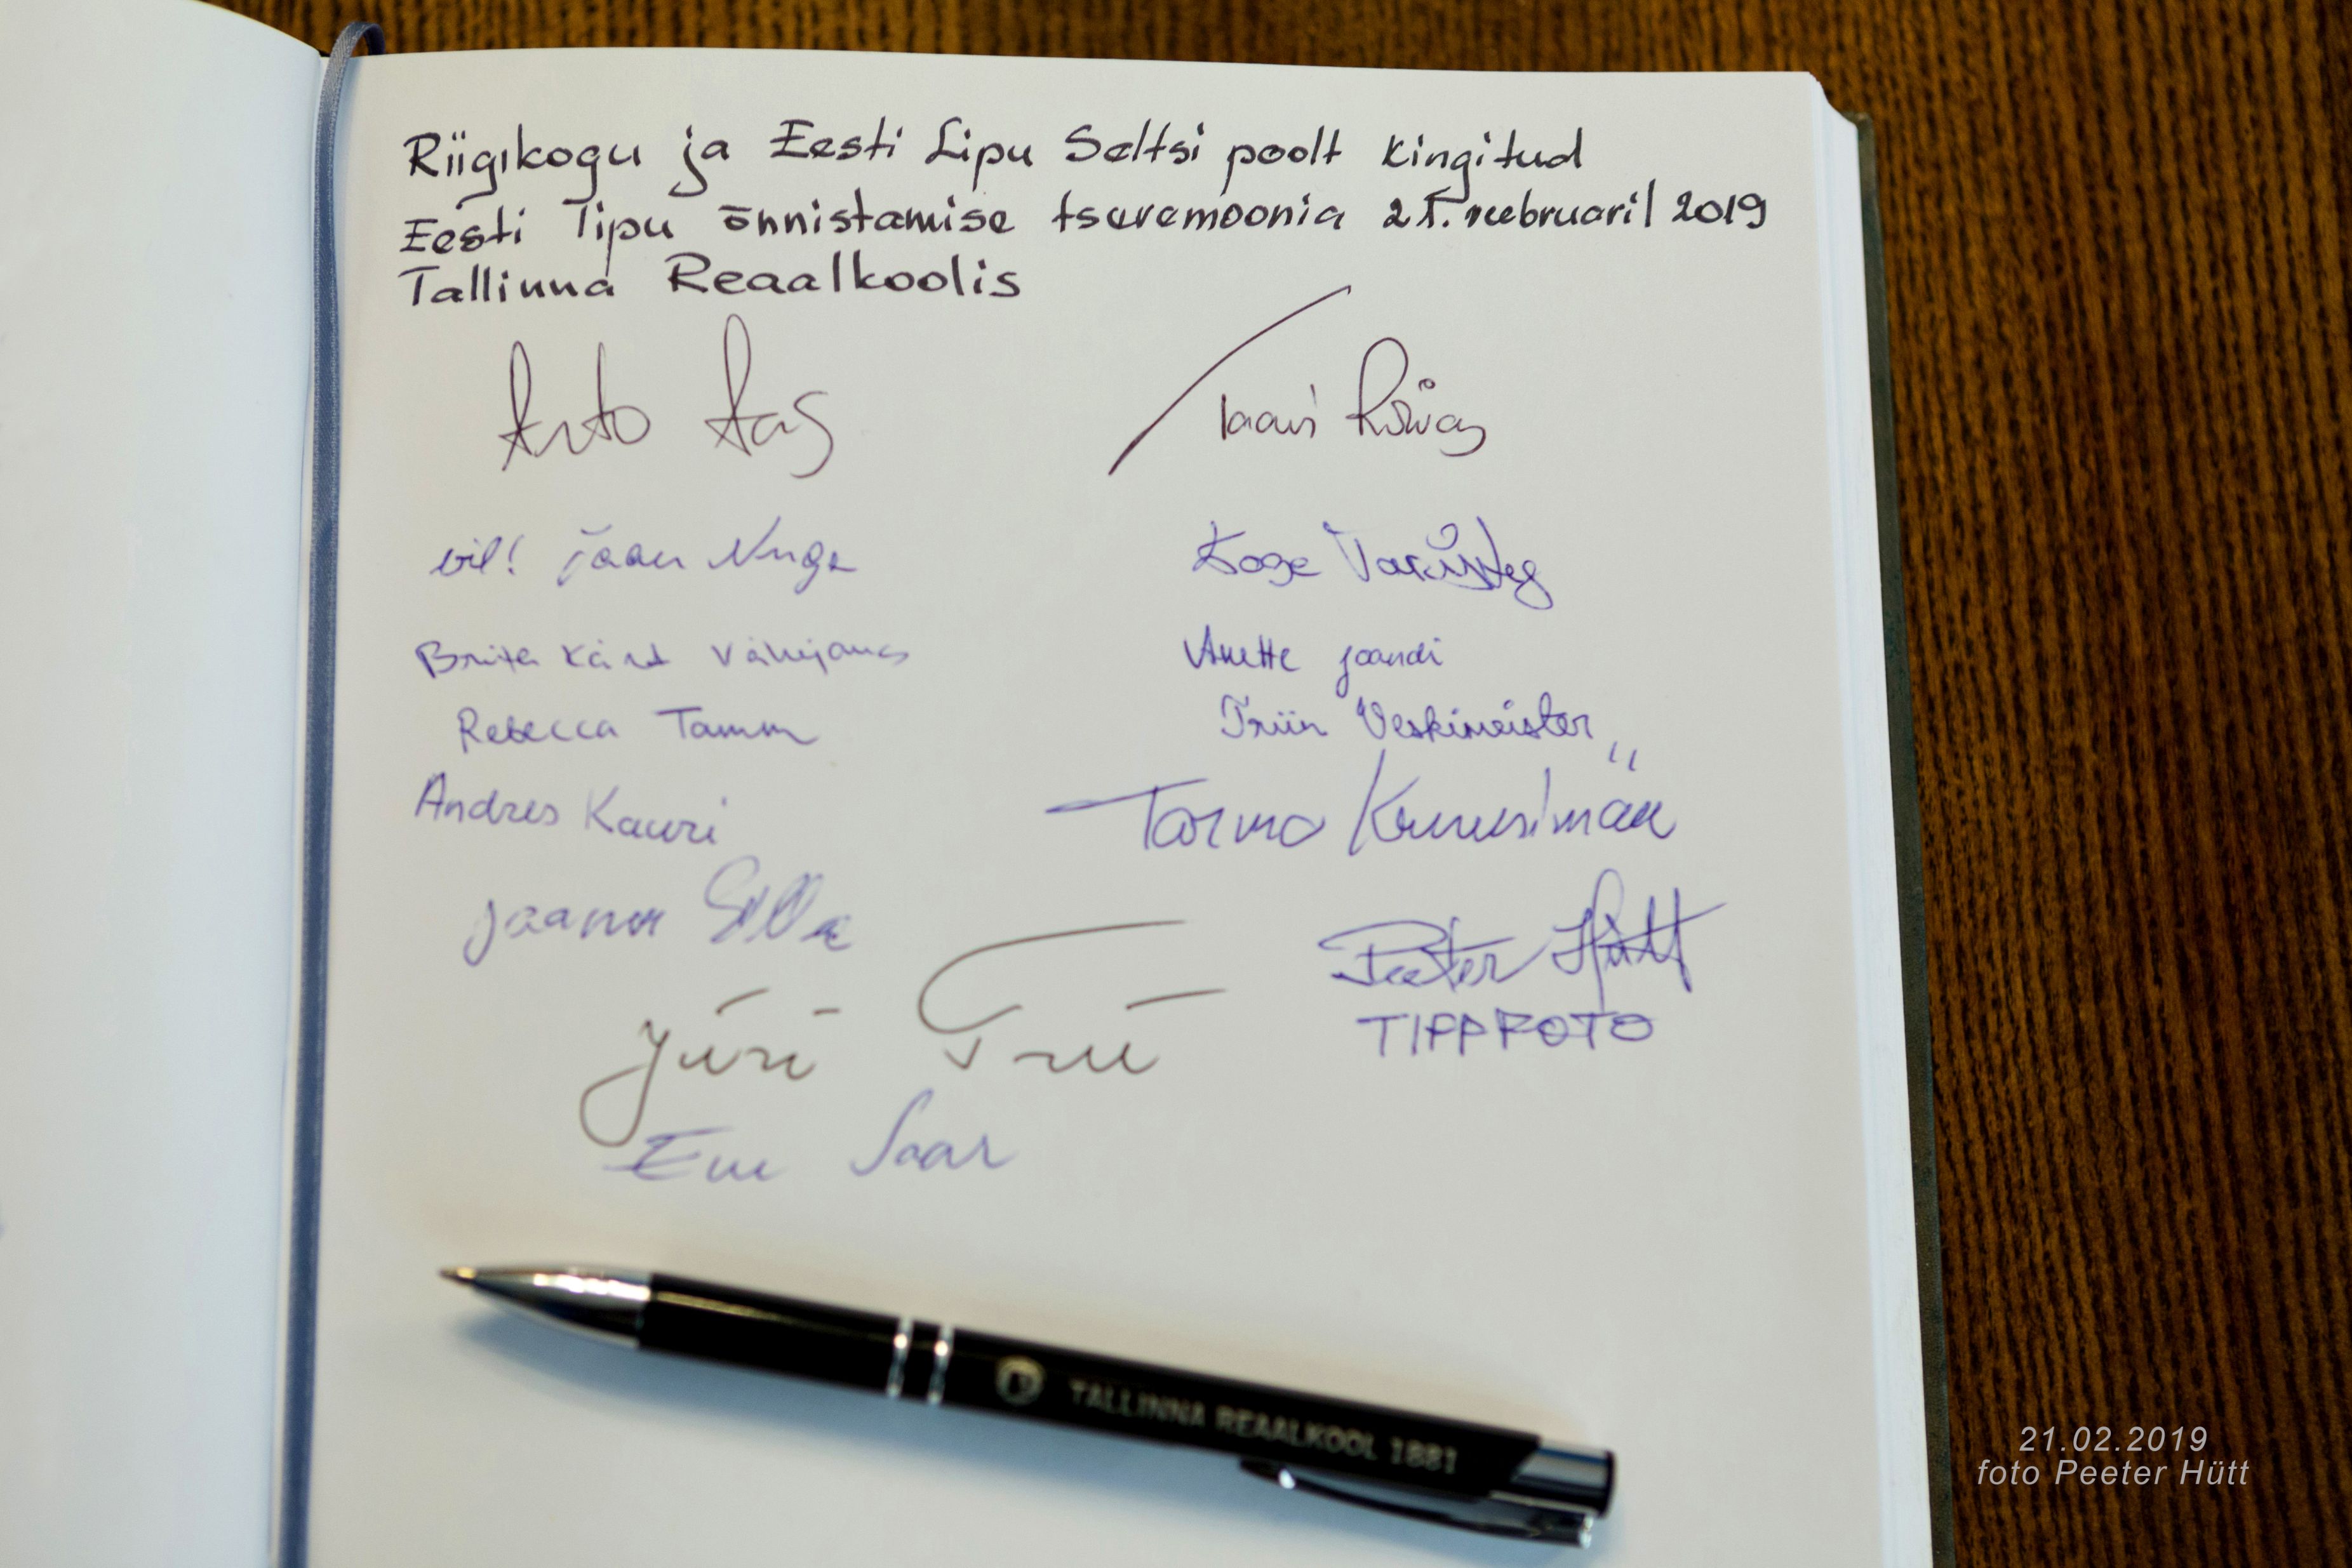 Riigikogu ja Eesti Lipu Seltsi poolt kingitud
Eesti Lipu õnnistamise tseremoonia 21. veebruaril 2019
Tallinna Reaalkoolis
Arto Aas
Taavi Rõivas
vil! Jaan Nuga
Brita Kärt
Anette Jaandi
Rebecca Tamm
Triin Veskimeister
Andres Kauri
Tarmo Kruusimäe
Jaanus
Peeter Hütt
TIPPFOTO
Jüri Trei
Ene Saar
TALLINNA REAALKOOL 1881
21.02.2019
foto Peeter Hütt